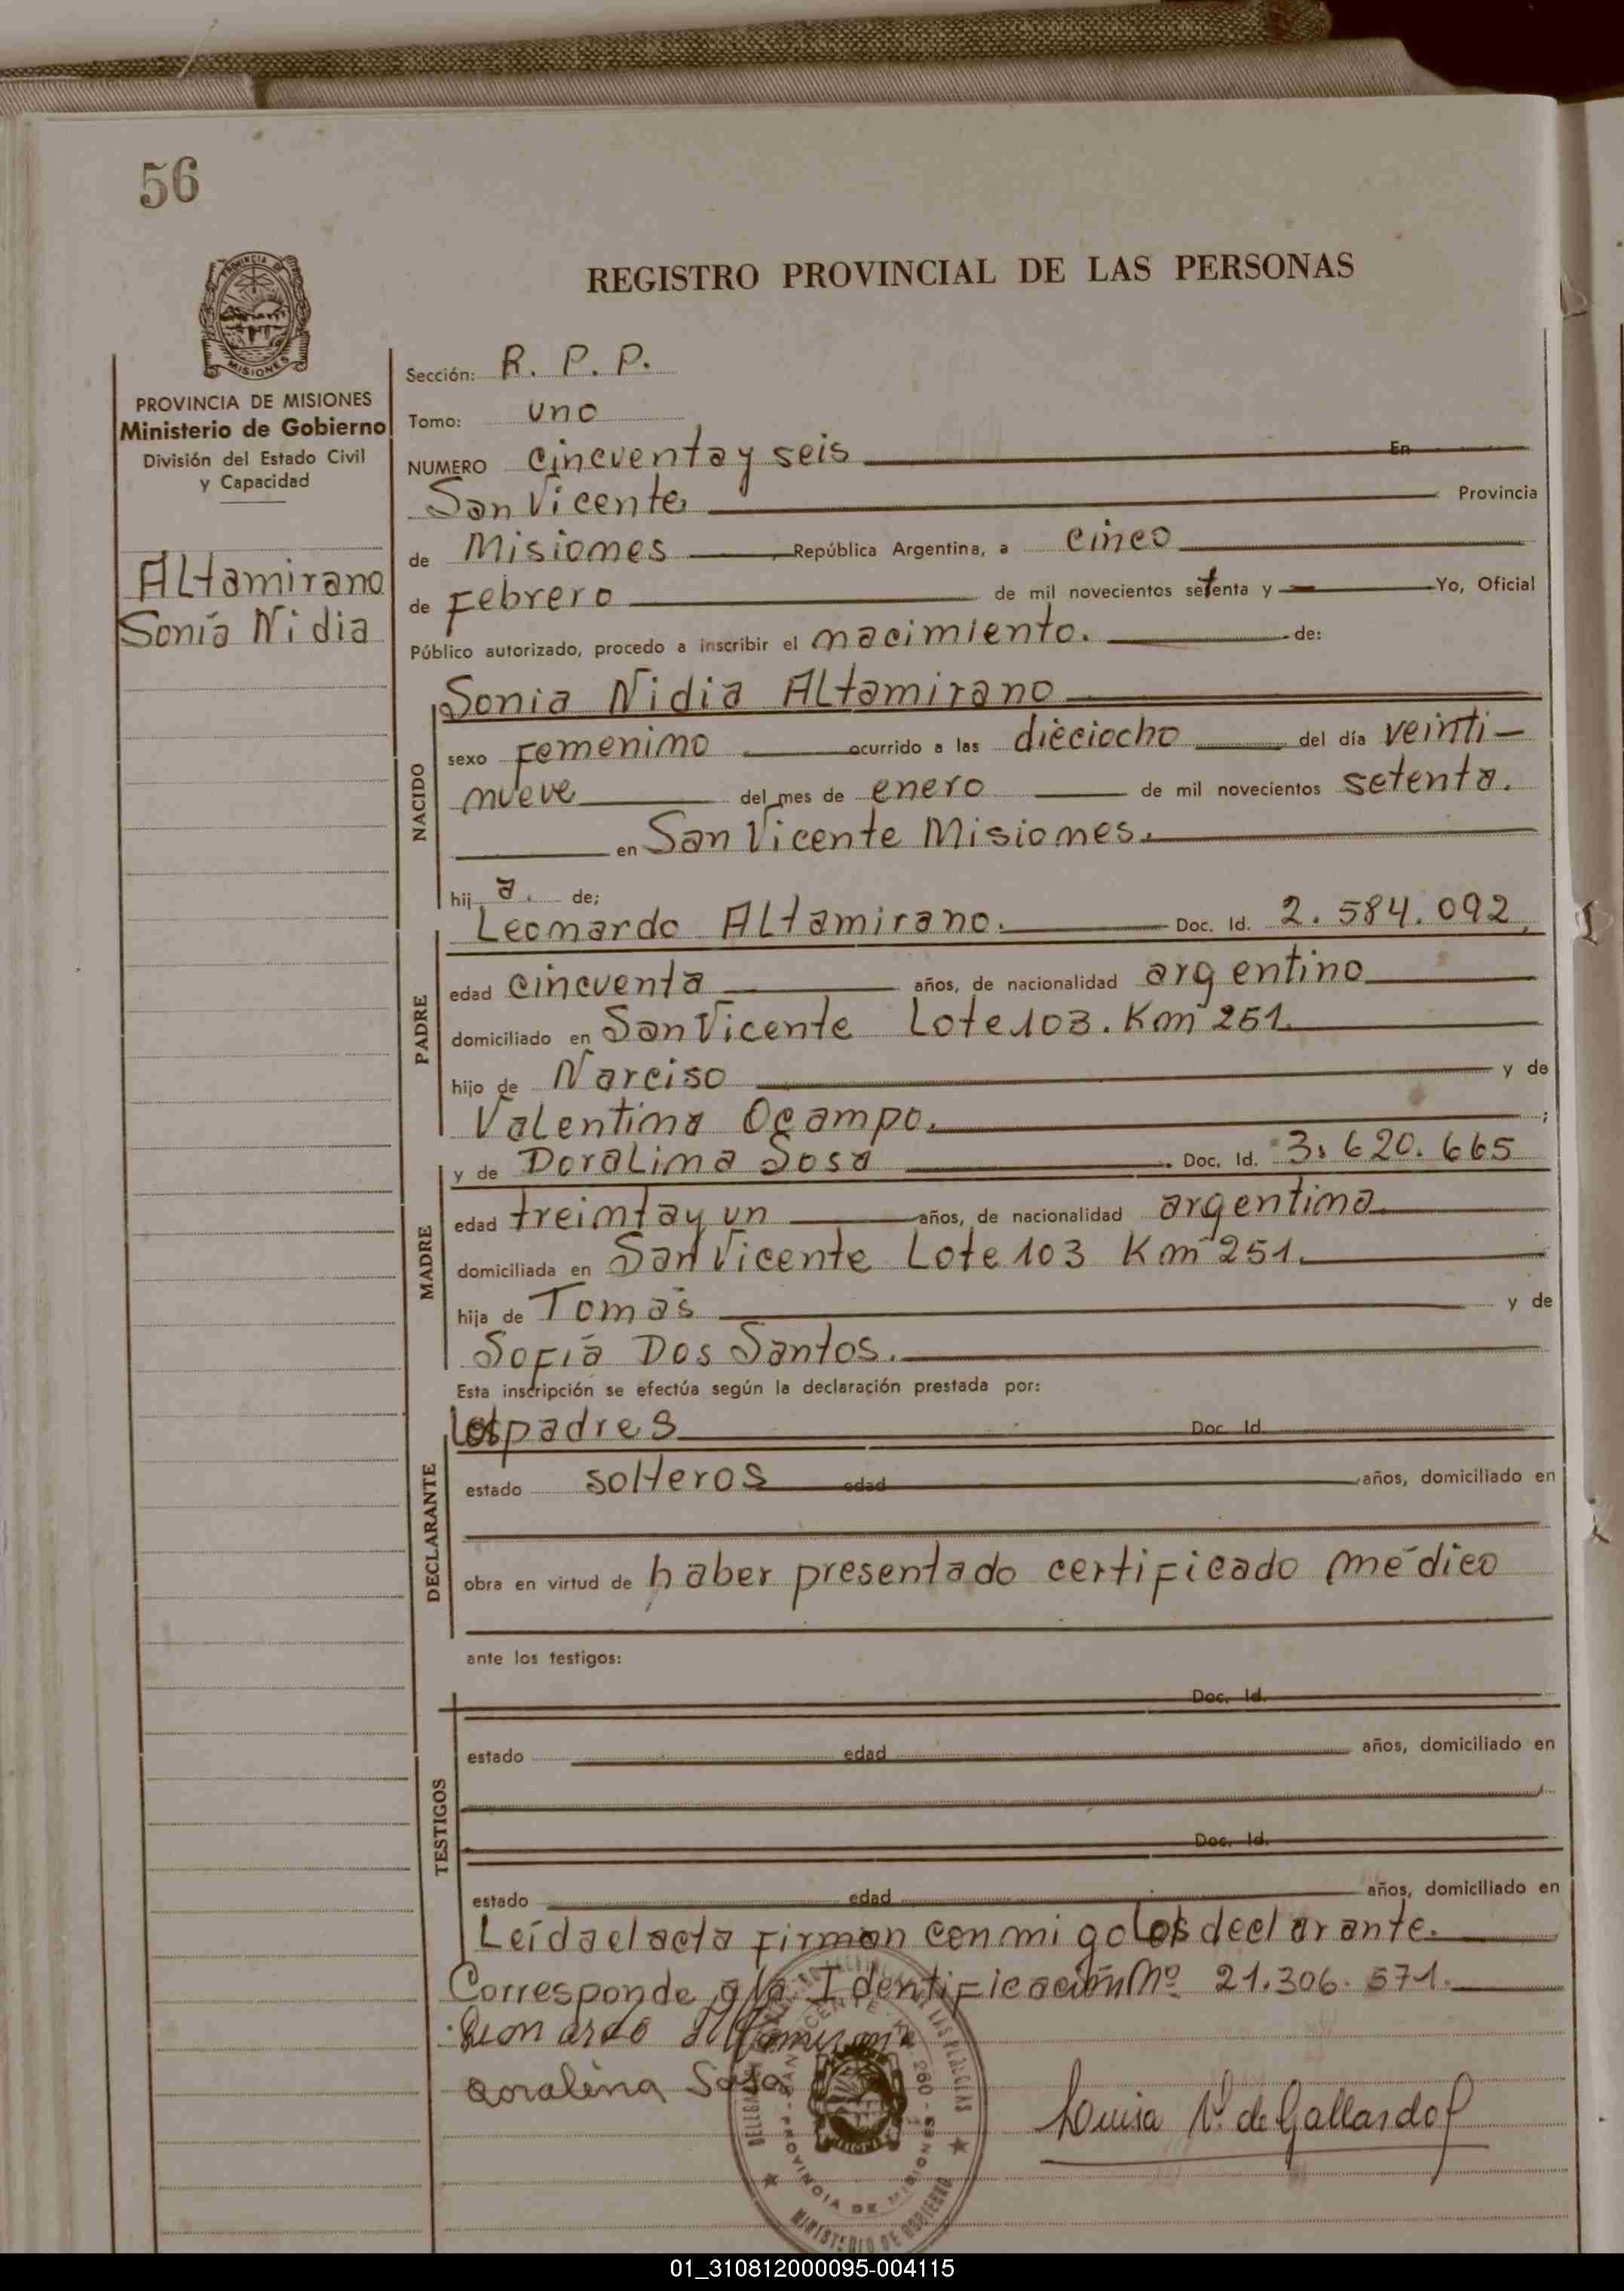 56
REGISTRO PROVINCIAL DE LAS PERSONAS
PROVINCIA DE MISIONES
Ministerio de Gobierno
División del Estado Civil
y Capacidad
Altamirano
Sonia Nidia
Sección: R. P. P.
Tomo: uno
NUMERO cincuenta y seis En
San Vicente Provincia
de Misiones República Argentina, a cinco
de Febrero de mil novecientos setenta y Yo, Oficial
Público autorizado, procedo a inscribir el nacimiento. de:
NACIDO
Sonia Nidia Altamirano
sexo Femenino ocurrido a las dieciocho del día veinti-
nueve del mes de enero de mil novecientos setenta.
en San Vicente Misiones.
hij a. de;
PADRE
Leonardo Altamirano. Doc. Id. 2.584.092,
edad cincuenta años, de nacionalidad argentino
domiciliado en San Vicente Lote 103. Km 251.
hijo de Narciso y de
Valentina Ocampo. ;
MADRE
y de Doralina Sosa Doc. Id. 3.620.665
edad treinta y un años, de nacionalidad argentina
domiciliada en San Vicente Lote 103 Km 251.
hija de Tomás y de
Sofiá Dos Santos.
Esta inscripción se efectúa según la declaración prestada por:
DECLARANTE
los padres Doc. Id.
estado solteros edad años, domiciliado en
obra en virtud de haber presentado certificado médico
ante los testigos:
TESTIGOS
Doc. Id.
estado edad años, domiciliado en
Doc. Id.
estado edad años, domiciliado en
Leída el acta firman conmigo los declarante.
Corresponde a la Identificación Nº 21.306.571.
Leonardo Altamirano
Doralina Sosa
Louisa V. de Gallardo
PROVINCIA DE MISIONES
MINISTERIO DE GOBIERNO
01_310812000095-004115